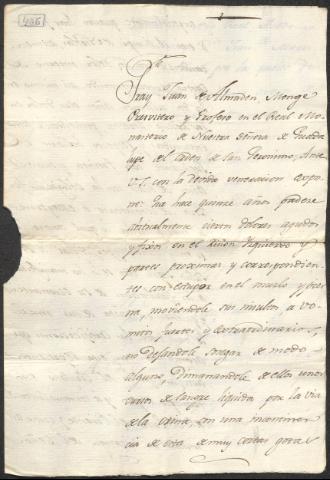 436
Fray Juan de Almaden, Monge
Presvitero y Profeso en el Real Mo-
nasterio de Nuestra Señora de Guada
lupe del orden de San Geronimo, Ante
V.S. con la devida veneracion expo-
ne: Ha hace quince años padece
havitualmente ciertos dolores agudos
y fixos en el Riñon Izquierdo y
partes proximas y correspondien
tes con estupor en el muslo y pier
na, moviendole sin insultos a vo-
mitos fuertes y extraordinarios,
no dejandole sosegar de modo
alguno, Dimanandole de ellos unos
de sangre liquida por la via
de la orina, con una
cia de esta de muy cortas gotas